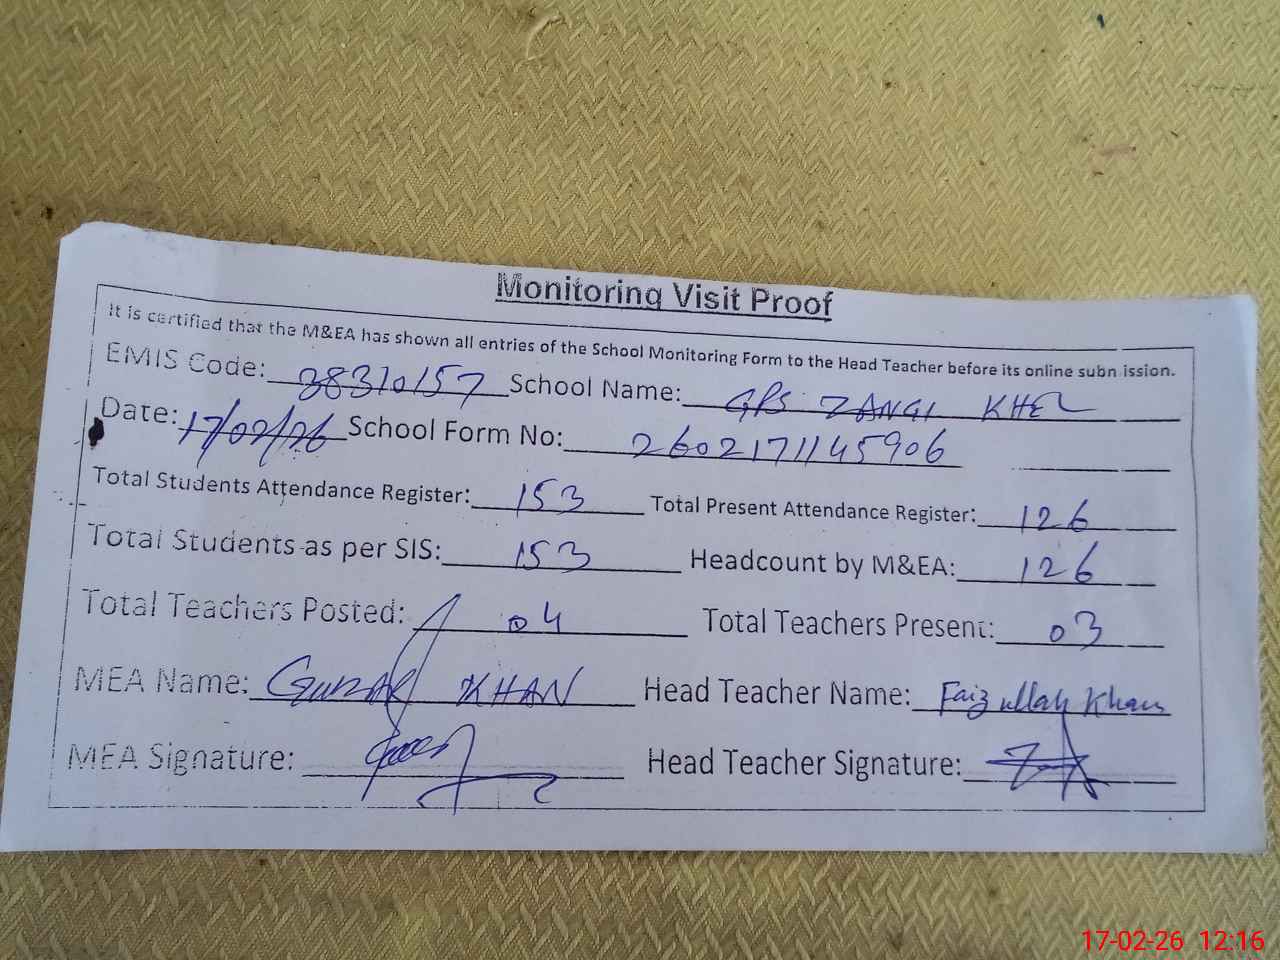 Monitoring Visit Proof
It is certified that the M&EA has shown all entries of the School Monitoring Form to the Head Teacher before its online subn ission.
EMIS Code: 38310157 School Name: GPS ZANGI KHEL
Date: 17/02/26 School Form No: 2602171145906
Total Students Attendance Register: 153 Total Present Attendance Register: 126
Total Students as per SIS: 153 Headcount by M&EA: 126
Total Teachers Posted: 04 Total Teachers Present: 03
MEA Name: KHAN Head Teacher Name: Faizullah Khan
MEA Signature: Head Teacher Signature:
17-02-26 12:16